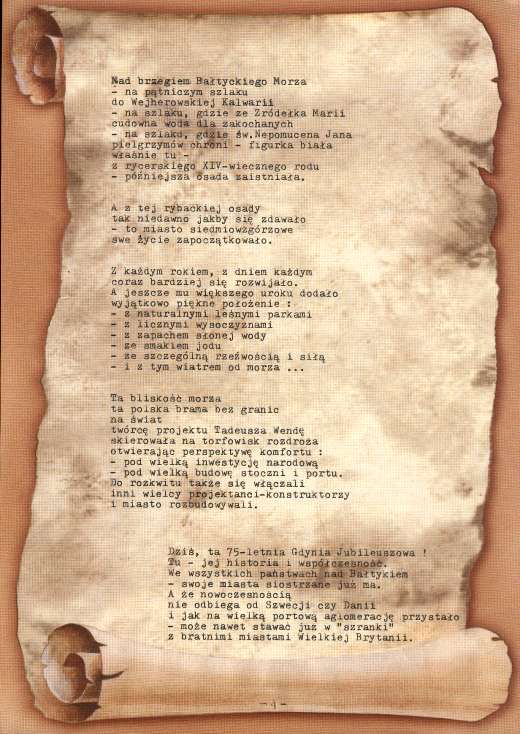 Nad brzegiem Bałtyckiego Morza
- na pątniczym szlaku
do Wejherowskiej Kalwarii
- na szlaku, gdzie ze Zródełka Marii
cudowna woda dla zakochanych
- na szlaku, gdzie św.Nepomucena Jana
pielgrzymów chroni - figurka biała
właśnie tu -
z rycerskiego XIV-wiecznego rodu
- późniejsza osada zaistniała.
A z tej rybackiej osady
tak niedawno jakby się zdawało
- to miasto siedmiowzgórzowe
swe życie zapoczątkowało.
Z każdym rokiem, z dniem każdym
coraz bardziej się rozwijało.
A jeszcze mu większego uroku dodało
wyjątkowo piękne położenie :
- z naturalnymi leśnymi parkami
- z licznymi wysoczyznami
- z zapachem słonej wody
- ze smakiem jodu
- ze szczególną rzeźwością i siłą
- i z tym wiatrem od morza ...
Ta bliskość morza
ta polska brama bez granic
na świat
twórcę projektu Tadeusza Wendę
skierowała na torfowisk rozdroża
otwierając perspektywę komfortu :
- pod wielką inwestycję narodową
- pod wielką budowę stoczni i portu.
Do rozkwitu także się włączali
inni wielcy projektanci-konstruktorzy
i miasto rozbudowywali.
Dziś, ta 75-letnia Gdynia Jubileuszowa !
Tu - jej historia i współczesność.
We wszystkich państwach nad Bałtykiem
- swoje miasta siostrzane już ma.
A że nowoczesnością
nie odbiega od Szwecji czy Danii
i jak na wielką portową aglomerację przystało
- może nawet stawać już w "szranki"
z bratnimi miastami Wielkiej Brytanii.
- 4 -